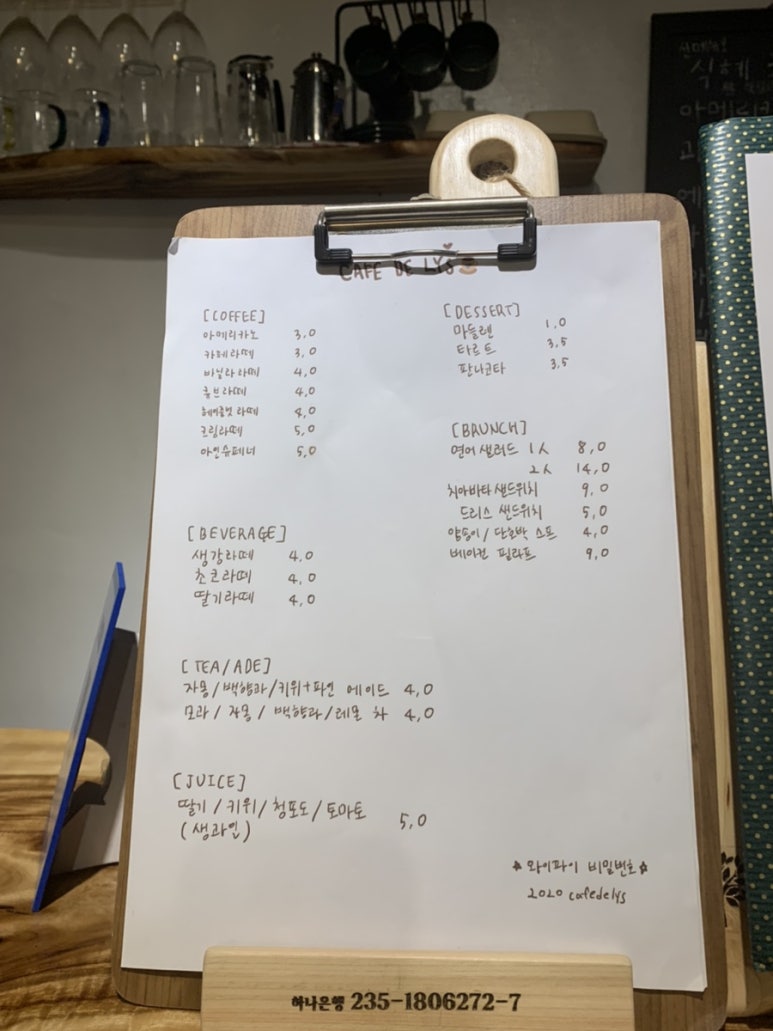 CAFE DE LYS
[COFFEE]
아메리카노 3,0
카페라떼 3,0
바닐라 라떼 4,0
큐브라떼 4,0
헤이즐넛 라떼 4,0
크림라떼 5,0
아인슈페너 5,0
[BEVERAGE]
생강라떼 4,0
초코라떼 4,0
딸기라떼 4,0
[TEA/ADE]
자몽/백향과/키위+파인 에이드 4,0
모과/자몽/백향과/레몬 차 4,0
[JUICE]
딸기/키위/청포도/토마토 5,0
(생과일)
[DESSERT]
마들렌 1,0
타르트 3,5
판나코타 3,5
[BRUNCH]
연어 샐러드 1人 8,0
2人 14,0
치아바타 샌드위치 9,0
드리스 샌드위치 5,0
양송이/단호박 스프 4,0
베이컨 필라프 9,0
☆ 와이파이 비밀번호 ☆
2020 cafedelys
하나은행 235-1806272-7